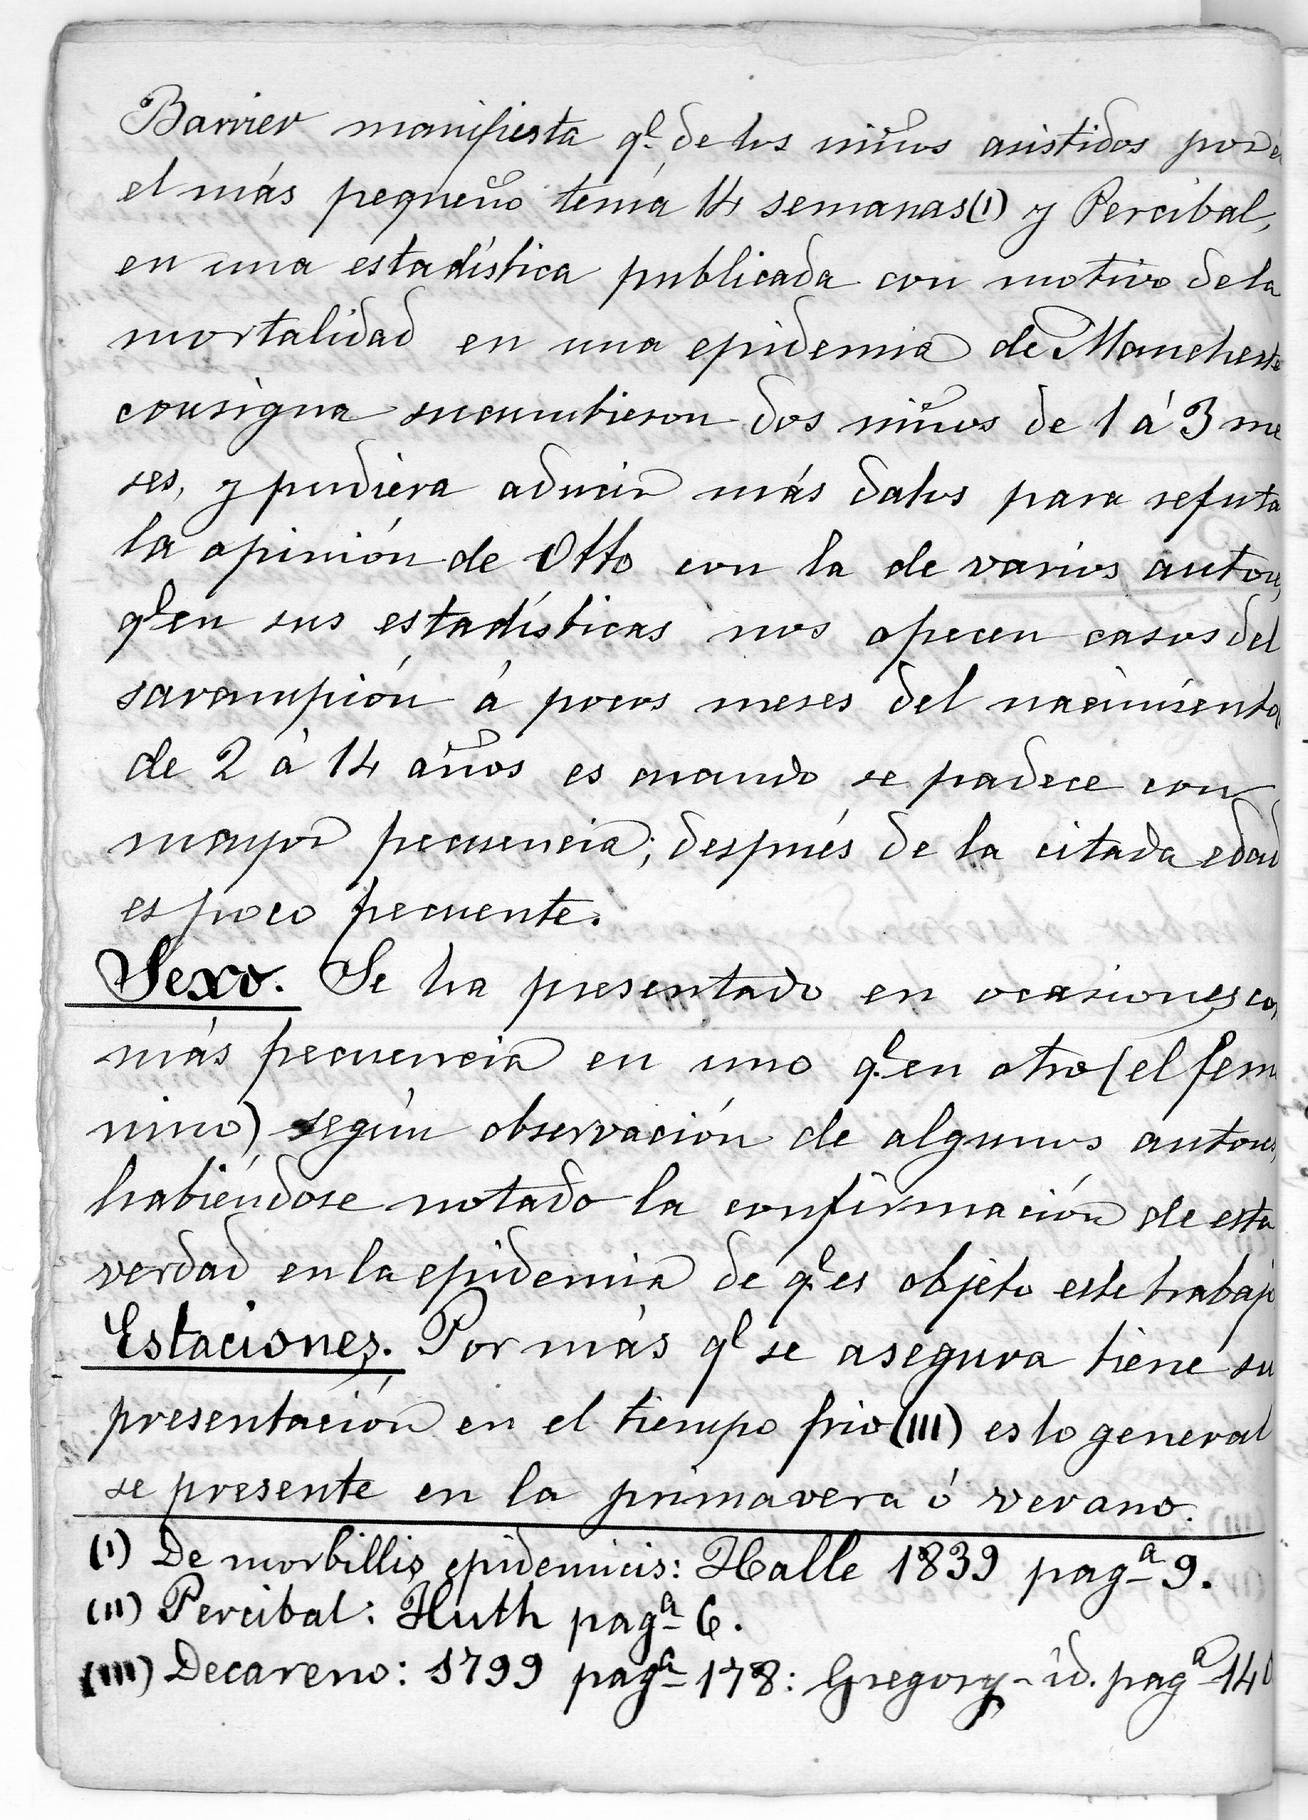 Barrier manifiesta q.l de los niños asistidos por él
el más pequeño tenía 14 semanas (I) y Percibal,
en una estadística publicada con motivo de la
mortalidad en una epidemia de Mancheste
consigna sucumbieron dos niños de 1 á 3 me
ses, y pudiera aducir más datos para refuta
la opinión de Otto con la de varios autores,
q.l en sus estadísticas nos ofrecen casos del
sarampión á pocos meses del nacimiento
de 2 á 14 años es cuando se padece con
mayor frecuencia; después de la citada edad
es poco frecuente.
Sexo. Se ha presentado en ocasiones con
más frecuencia en uno q.l en otro (el feme
nino) según observación de algunos autores,
habiéndose notado la confirmación de esta
verdad en la epidemia de q.l es objeto este trabajo
Estaciones. Por más q.l se asegura tiene su
presentación en el tiempo frio (III) es lo general
se presente en la primavera ó verano.
(I) De morbillis epidemicis: Halle 1839 pag.a 9.
(II) Percibal: Huth pag.a 6.
(III) Decareno: 1799 pag.a 178: Gregory - id. pag.a 140